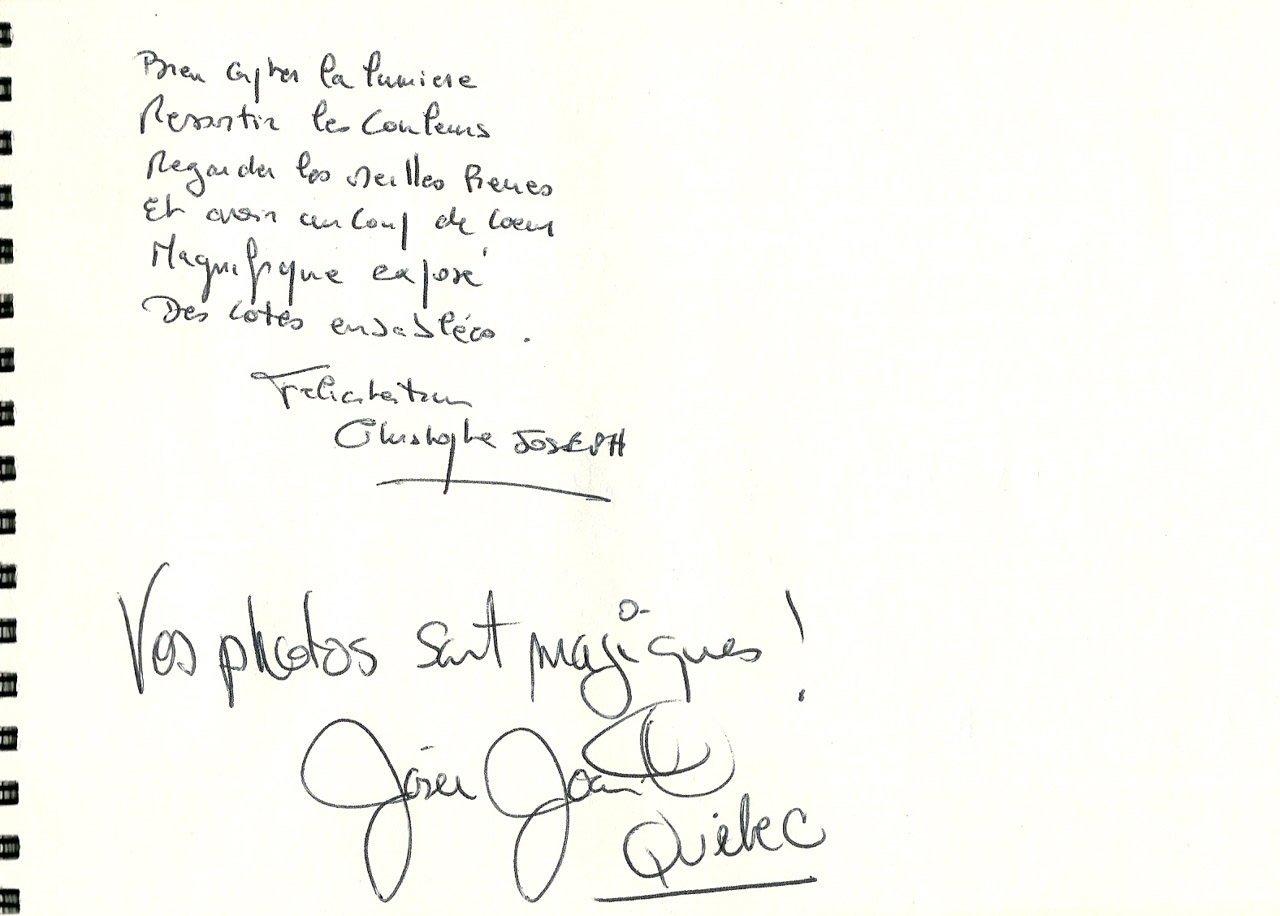 Bien capter la lumiere
Ressortir les couleurs
Regarder les vieilles Pierres
Et avoir un coup de coeur
Magnifique exposé
Des cotes ensablées.
Félicitation
Christophe JOSEPH
Vos photos sont magiques!
Josée
Québec